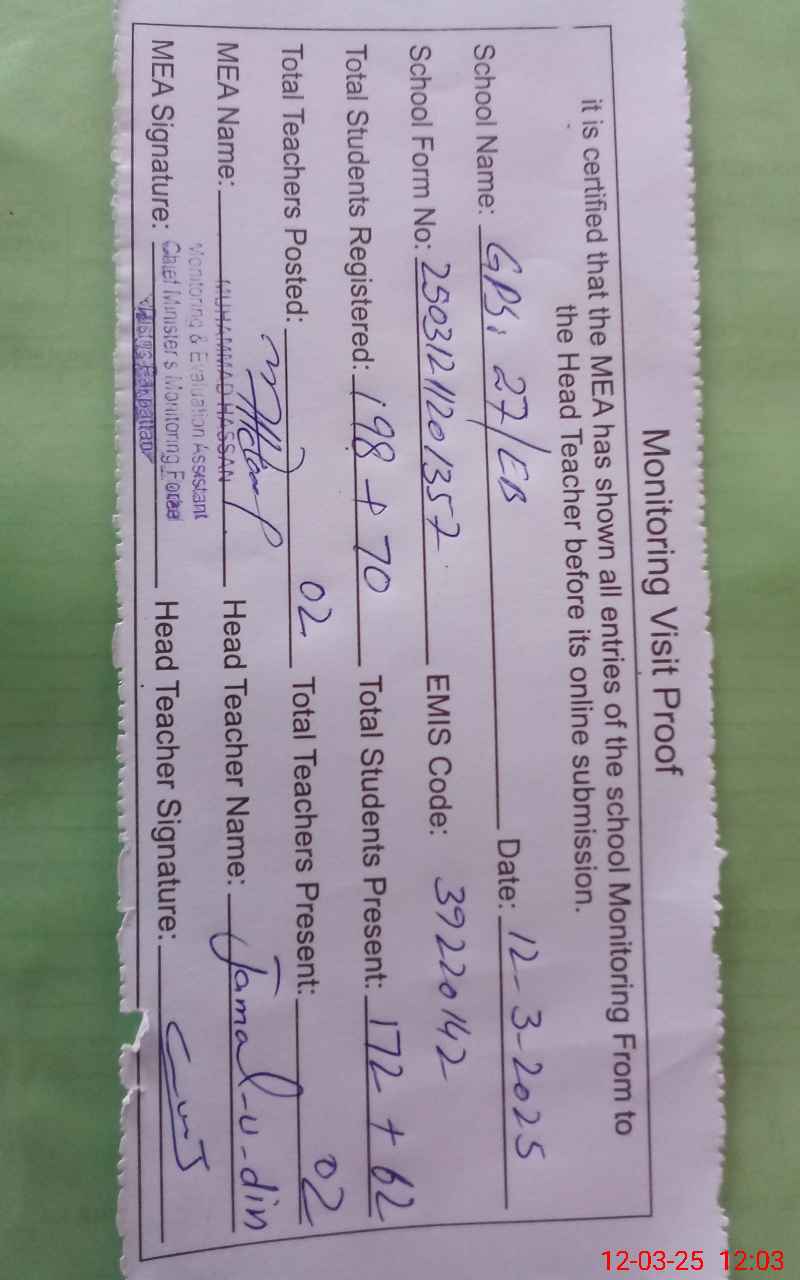 Monitoring Visit Proof
it is certified that the MEA has shown all entries of the school Monitoring From to
the Head Teacher before its online submission.
School Name: GPS, 27/EB Date: 12-3-2025
School Form No: 25031211201357 EMIS Code: 39220142
Total Students Registered: 198 + 70 Total Students Present: 172 + 62
Total Teachers Posted: 02 Total Teachers Present: 02
MEA Name: MUHAMMAD HASSAN Head Teacher Name: Jamal-u-din
Monitoring & Evaluation Assistant
MEA Signature: Chief Minister's Monitoring Force Head Teacher Signature:
12-03-25 12:03